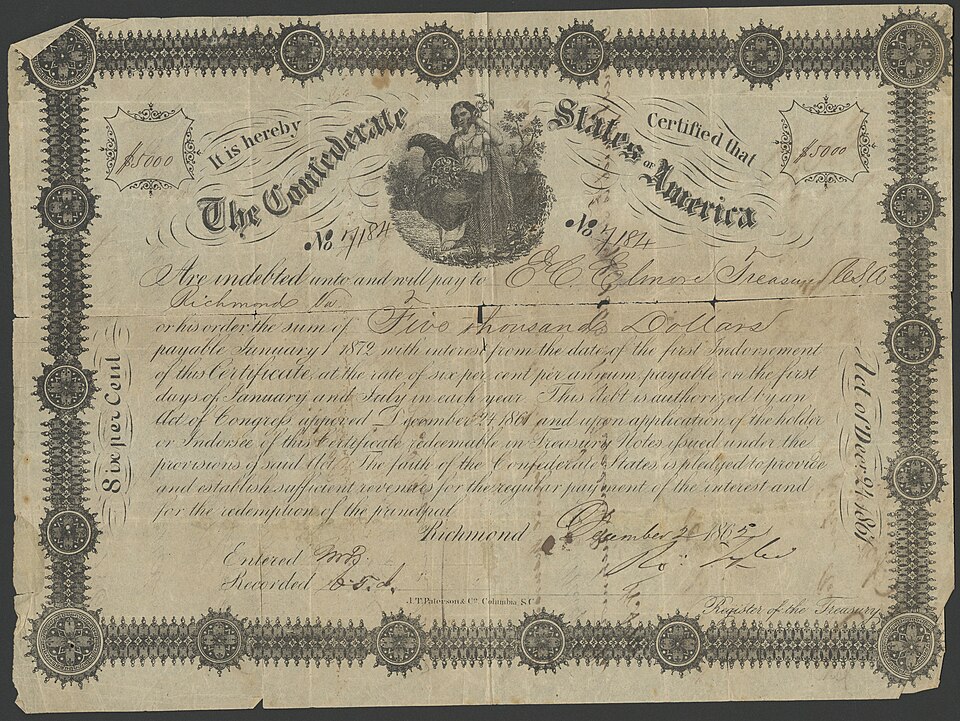 $5000
It is hereby
Certified that
$5000
The Confederate States OF America
No 7184
No 7184
Are indebted unto and will pay to E C Elmore Treasurer C.S.A
Richmond Va.
or his order the sum of Five thousand Dollars
payable January 1 1872 with interest from the date of the first Indorsement
of this Certificate, at the rate of six per cent per annum, payable on the first
days of January and July in each year. This debt is authorized by an
Act of Congress approved December 24 1861 and upon application of the holder
or Indorsee of this Certificate redeemable in Treasury Notes issued under the
provisions of said Act. The faith of the Confederate States is pledged to provide
and establish sufficient revenues for the regular payment of the interest and
for the redemption of the principal
Richmond December 2 1862
Ro: Tyler
Entered
Recorded
J.T. Paterson & Co. Columbia S.C.
Register of the Treasury
Six per Cent
Act of Dec. 24 1861